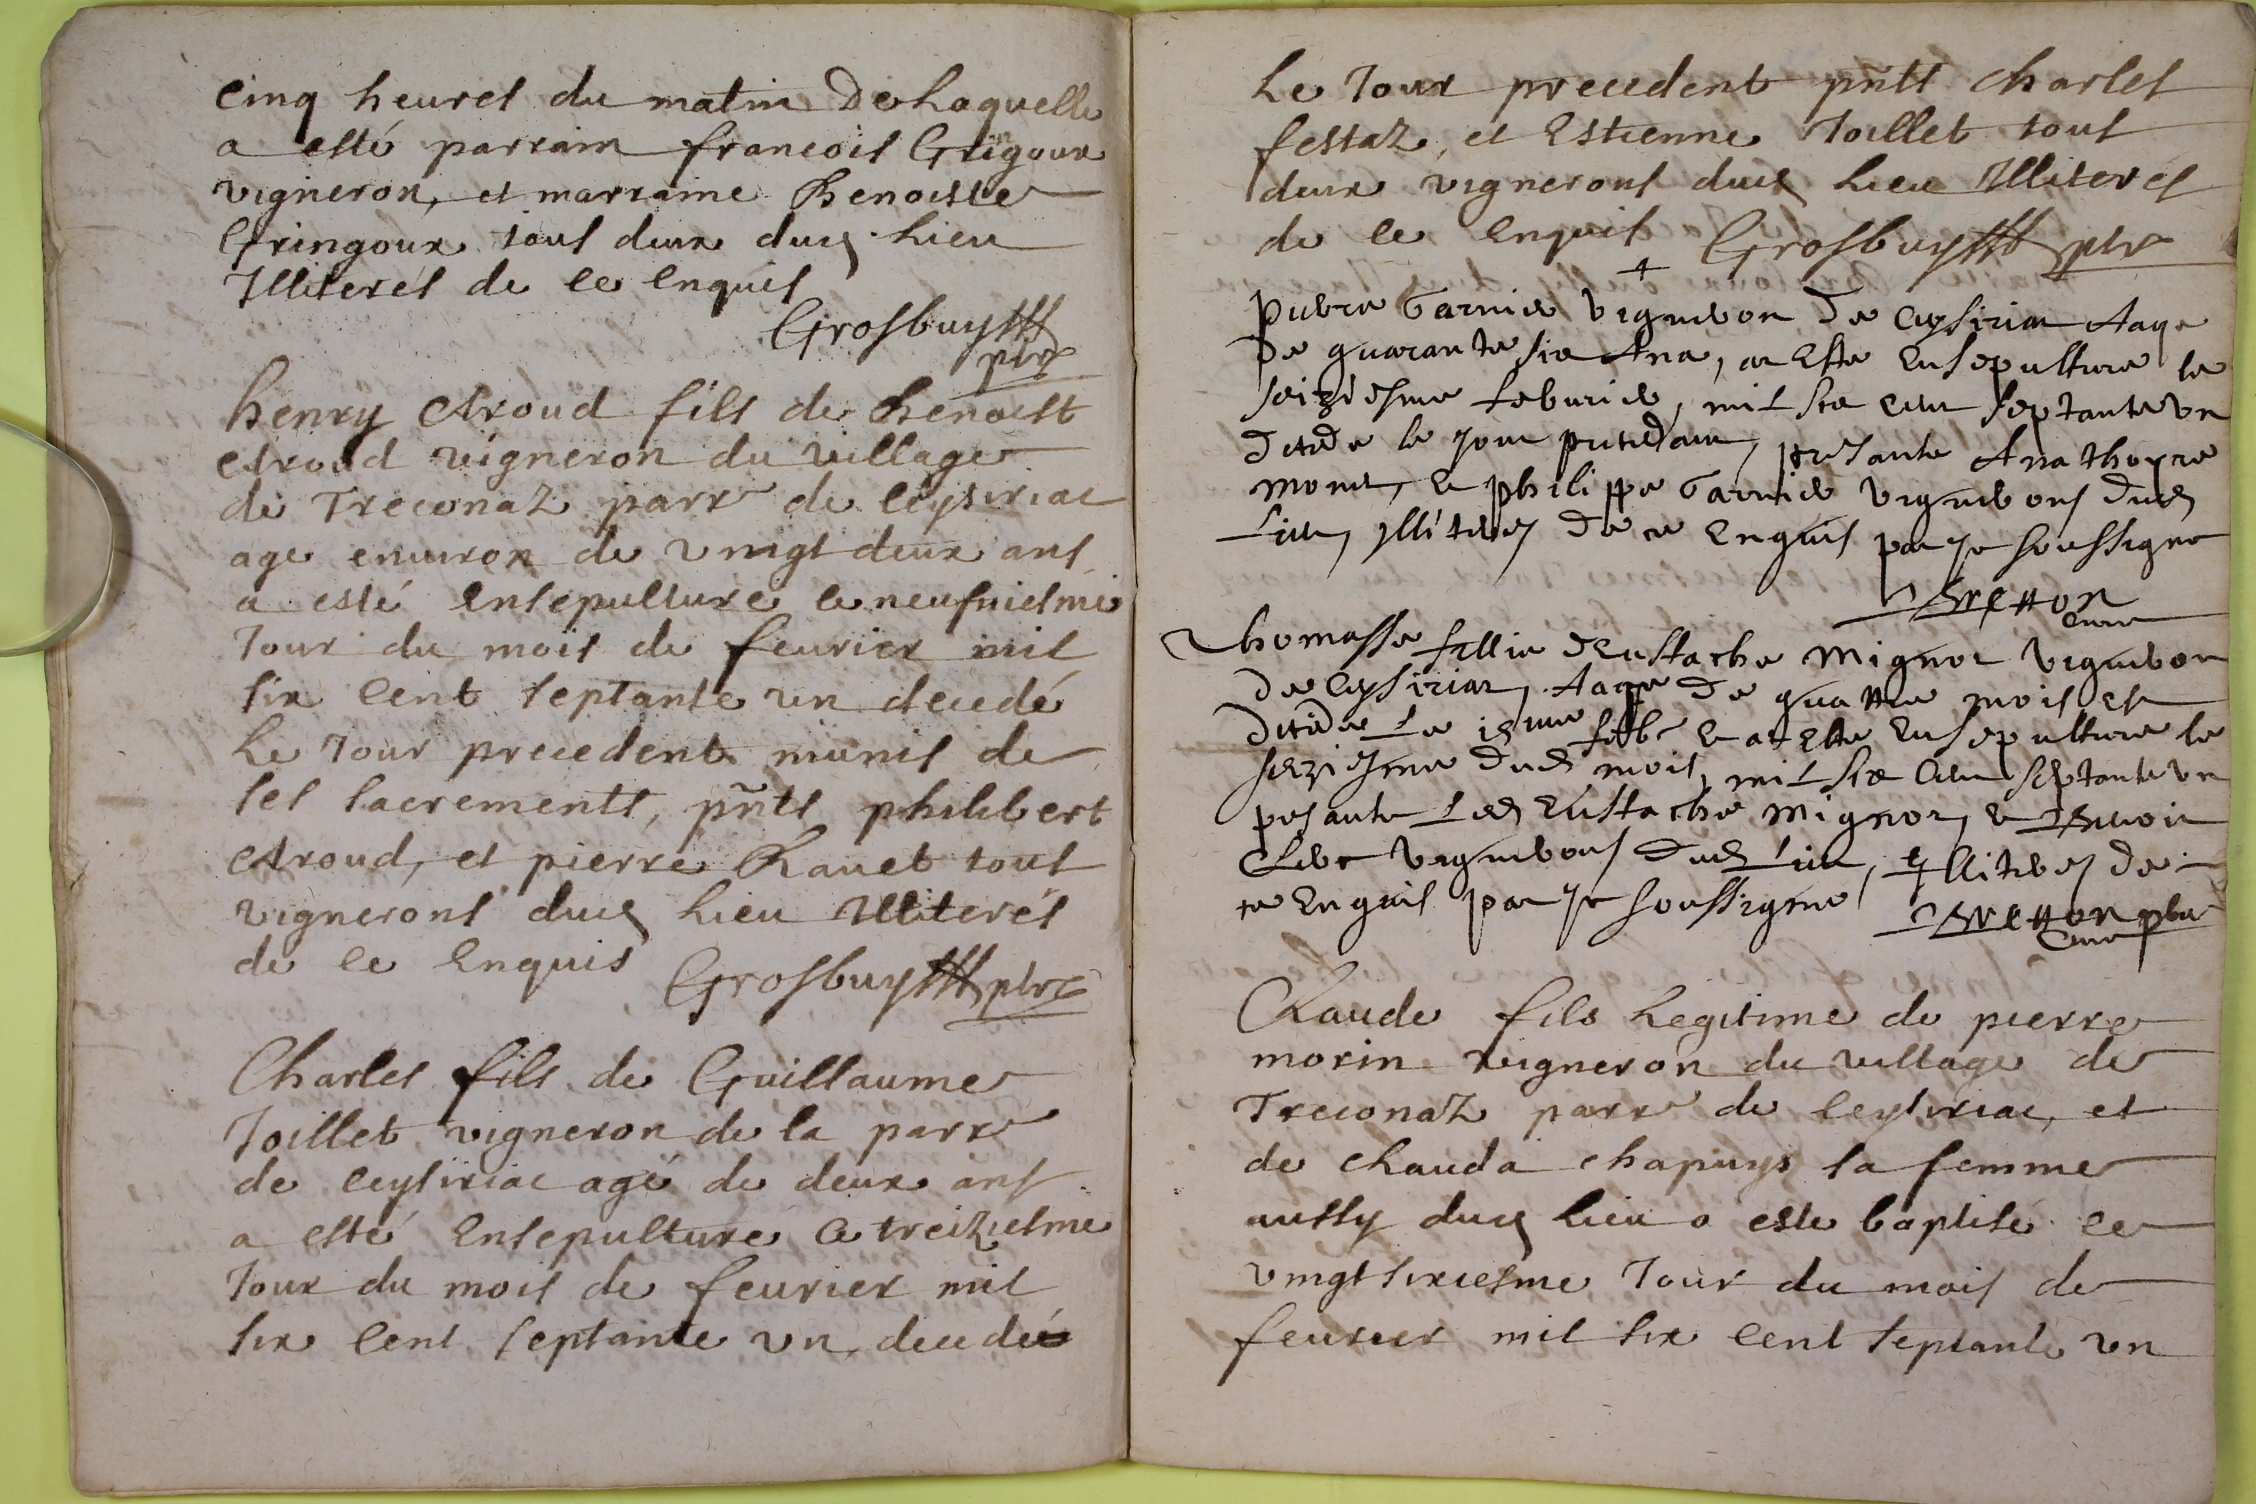 cinq heures du matin De Laquelle
a esté parrain francois Gringoux
vigneron, et marraine Benoiste
Gringoux tous deux dud. Lieu
Illiterés de ce enquis
Grosbuyss
ptre
henry Aroud fils de Benoist
Aroud vigneron du village
de Treconaz parre de Ceysiriac
age enuiron de vingt deux ans
a esté ensepulturé ce neufuiesme
Jour du mois de feurier mil
six cent septante un decedé
Le Jour precedent munis de
ses sacrements, pñts philibert
Aroud, et pierre Rauet tous
vignerons dud Lieu Illiterés
de ce enquis Grosbuyss ptre
Charles fils de Guillaume
Joillet vigneron de la parre
de ceysiriac agé de deux ans
a esté ensepulturé Ce treiziesme
Jour du mois de feurier mil
six cent septante un decedé
Le Jour precedent pñts Charles
festaz, et Estienne Joillet tous
deux vignerons dud Lieu Illiterés
de ce enquis Grosbuyss ptre
+
pierre Garnier vigneron de Ceysiria Aage
de quarante six Ans, at Esté Ensepulture le
seiziesme feburier, mil six cent septante vn
décédé le jour precedant, presants Anathoyre
monet, et philippe Garnier vignerons dud
Lieu, jlliteres de ce Enquis par je soussigne
Bretton
Cure
Thomasse fillie d'Eustache Mignot vigneron
de Ceysiriat, Aage de quattre mois est
decedé Le 15me feb. Et at Esté Ensepulture le
seziesme dud mois, mil six Cent septante vn
presants Led Eustache Mignot, et Benoit
Clerc vignerons dud Lieu, Jlliteres de
ce Enquis par je soussigne Bretton pbre
Cure
Claude fils Legitime de pierre
morin vigneron du village de
Treconaz parre de ceysiriac, et
de Clauda Chapuys sa femme
aussy dud Lieu a esté baptisé ce
vingt sixiesme Jour du mois de
feurier mil six cent septante un